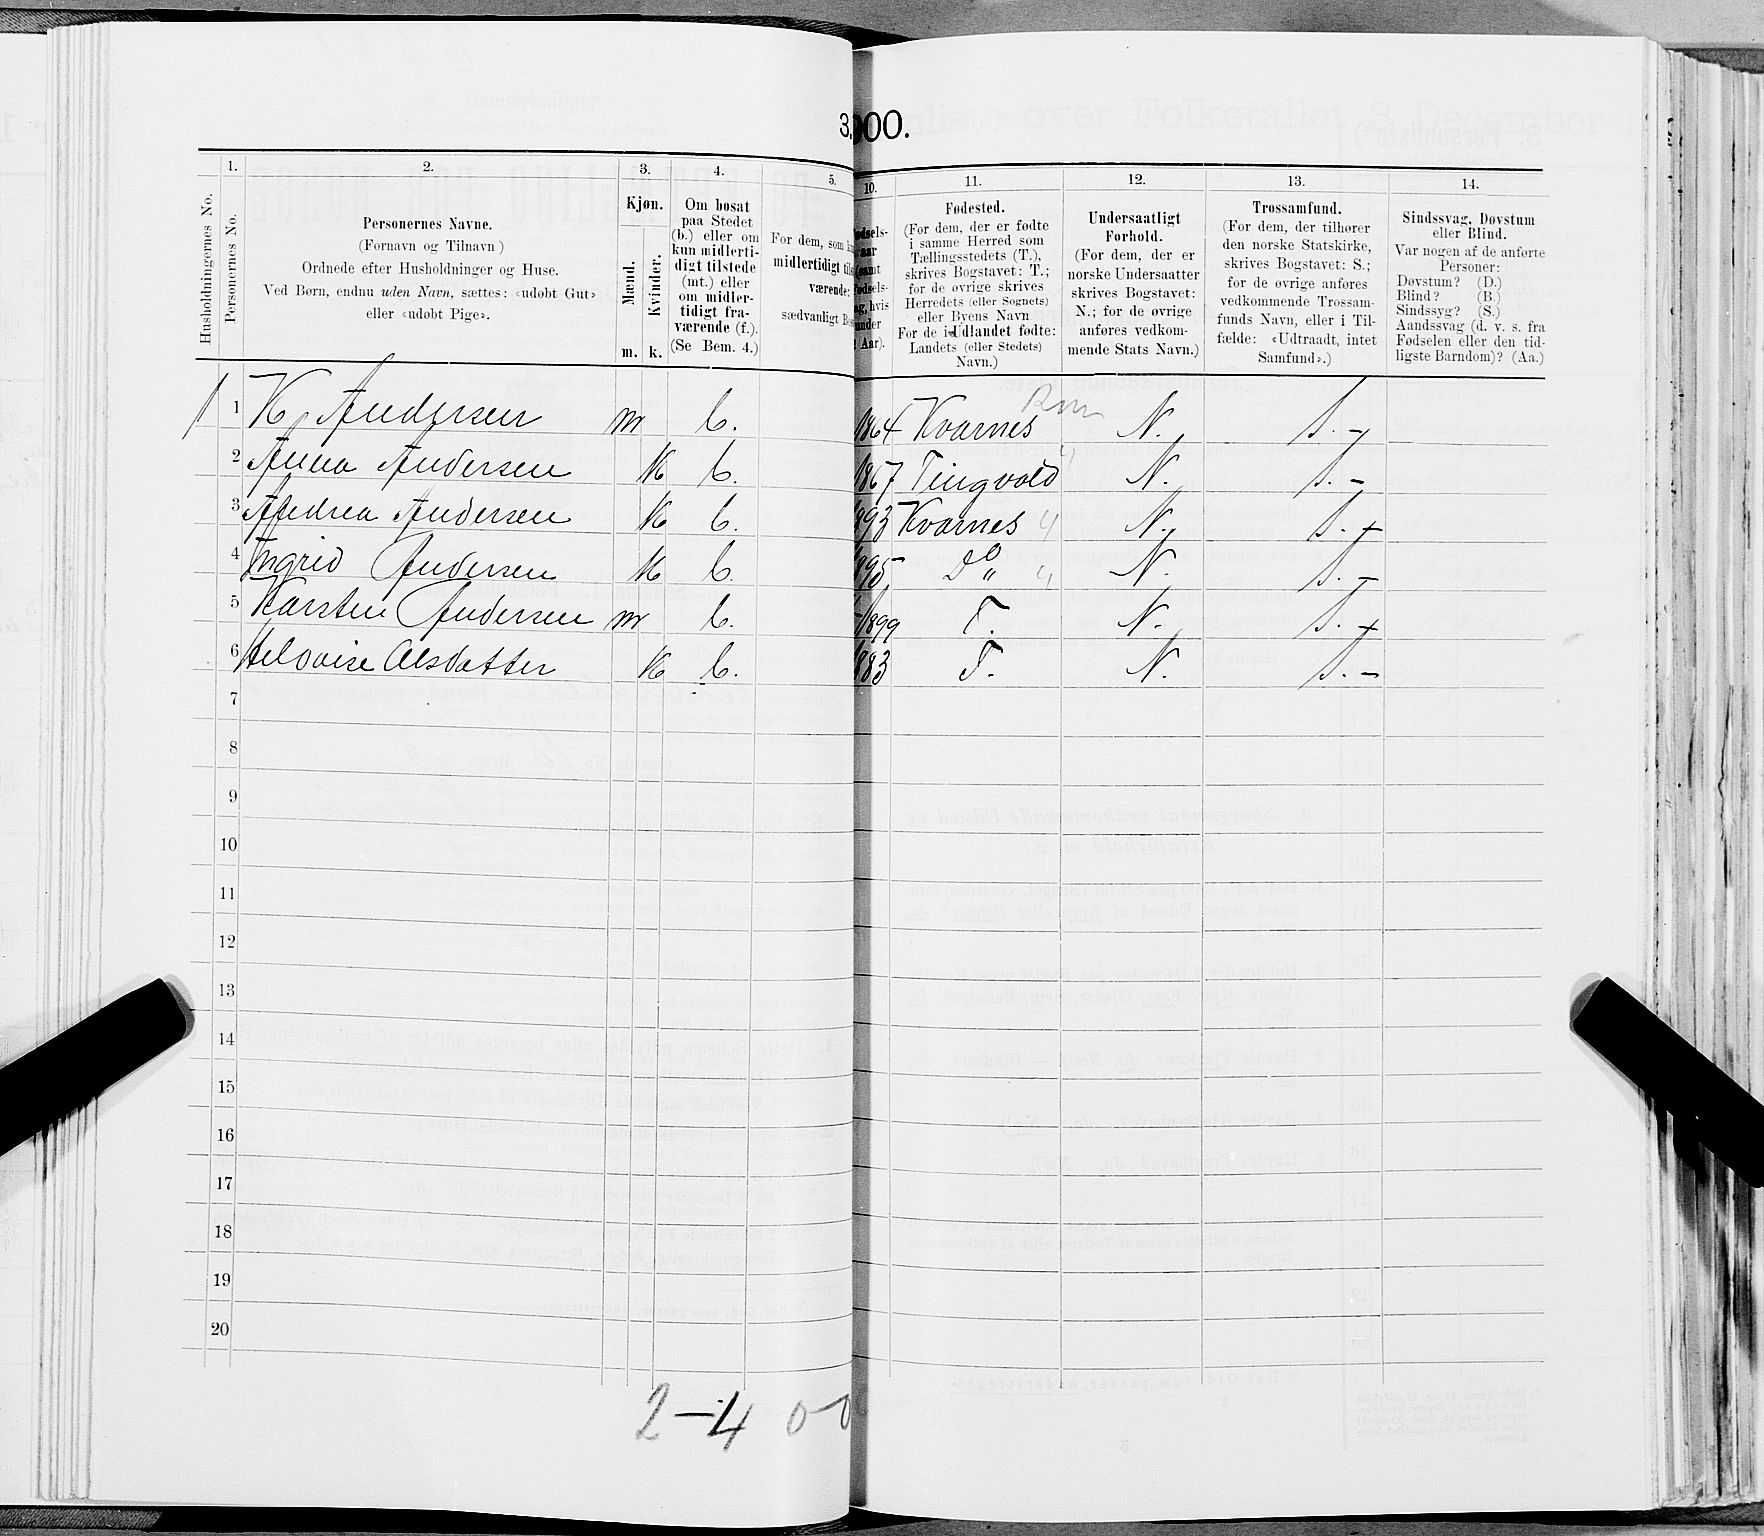 3. 900.
1. 2. 3. 4. 5. 10. 11. 12. 13. 14.
Husholdningernes No.
Personernes No.
Personernes Navne.
(Fornavn og Tilnavn)
Ordnede efter Husholdninger og Huse.
Ved Børn, endnu uden Navn, sættes: «udøbt Gut»
eller «udøbt Pige».
Kjøn.
Mænd.
Kvinder.
m. k.
Om bosat
paa Stedet
(b.) eller om
kun midlerti-
digt tilstede
(mt.) eller
om midler-
tidigt fra-
værende (f.).
(Se Bem. 4.)
For dem, som
midlertidigt
værende:
sædvanligt
Fødested.
(For dem, der er fødte
i samme Herred som
Tællingsstedets (T.),
skrives Bogstavet: T.;
for de øvrige skrives
Herredets (eller Sognets)
eller Byens Navn
For de i Udlandet fødte:
Landets (eller Stedets)
Navn.)
Undersaatligt
Forhold.
(For dem, der er
norske Undersaatter
skrives Bogstavet:
N.; for de øvrige
anføres vedkom-
mende Stats Navn.)
Trossamfund.
(For dem, der tilhører
den norske Statskirke,
skrives Bogstavet: S.;
for de øvrige anføres
vedkommende Trossam-
funds Navn, eller i Til-
fælde: «Udtraadt, intet
Samfund».)
Sindssvag, Døvstum
eller Blind.
Var nogen af de anførte
Personer:
Døvstum? (D.)
Blind? (B.)
Sindssyg? (S.)
Aandssvag (d. v. s. fra
Fødselen eller den tid-
ligste Barndom)? (Aa.)
1 1 K. Andersen m b. 1864 Kvarnes Rm N. S. -
2 Anna Andersen K b. 1867 Tingvold N. S. -
3 Andrea Andersen K b. 893 Kvarnes N. S. -
4 Ingrid Andersen K b. 895 Do N. S. -
5 Karsten Andersen m b. 1899 T. N. S. -
6 Helovise Olsdatter K b. 883 T. N. S. -
7
8
9
10
11
12
13
14
15
16
17
18
19
20
2-4 0-0